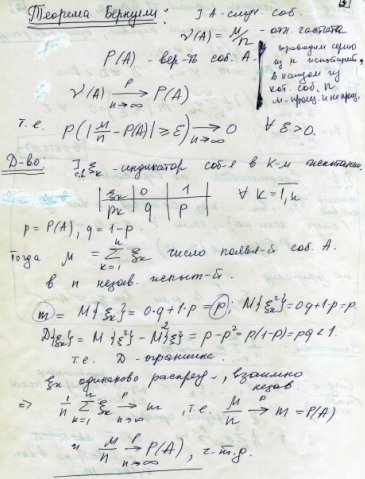 Теорема Бернулли: ] A - случ. соб.
ν(A) = м/n - отн. частота
проводим серию
из n испытаний,
в каждом из
кот. соб.
P(A) - вер-ть соб. A.
ν(A) →^P_{n→∞} P(A)
т.е. P(|м/n - P(A)| ≥ ε) →_{n→∞} 0 ∀ ε>0.
Д-во: ] ξk - индикатор соб-я в к-м испытании.
ξk | 0 | 1
pk | q | p
∀ k = 1,n
p = P(A), q = 1-p.
Тогда м = Σ_{k=1}^{n} ξk число появл-й соб. A.
в n незав. испыт-й.
m = M{ξk} = 0·q+1·p = p; M{ξk²} = 0q+1·p = p.
D{ξk} = M{ξ²} - M²{ξ} = p - p² = p(1-p) = pq < 1.
т.е. D - ограничие.
ξk одинаково распред., взаимно
незав.
⇒ 1/n Σ_{k=1}^{n} ξk →^P_{n→∞} m, т.е. м/n →^P m = P(A)
и м/n →^P_{n→∞} P(A), ч.т.д.